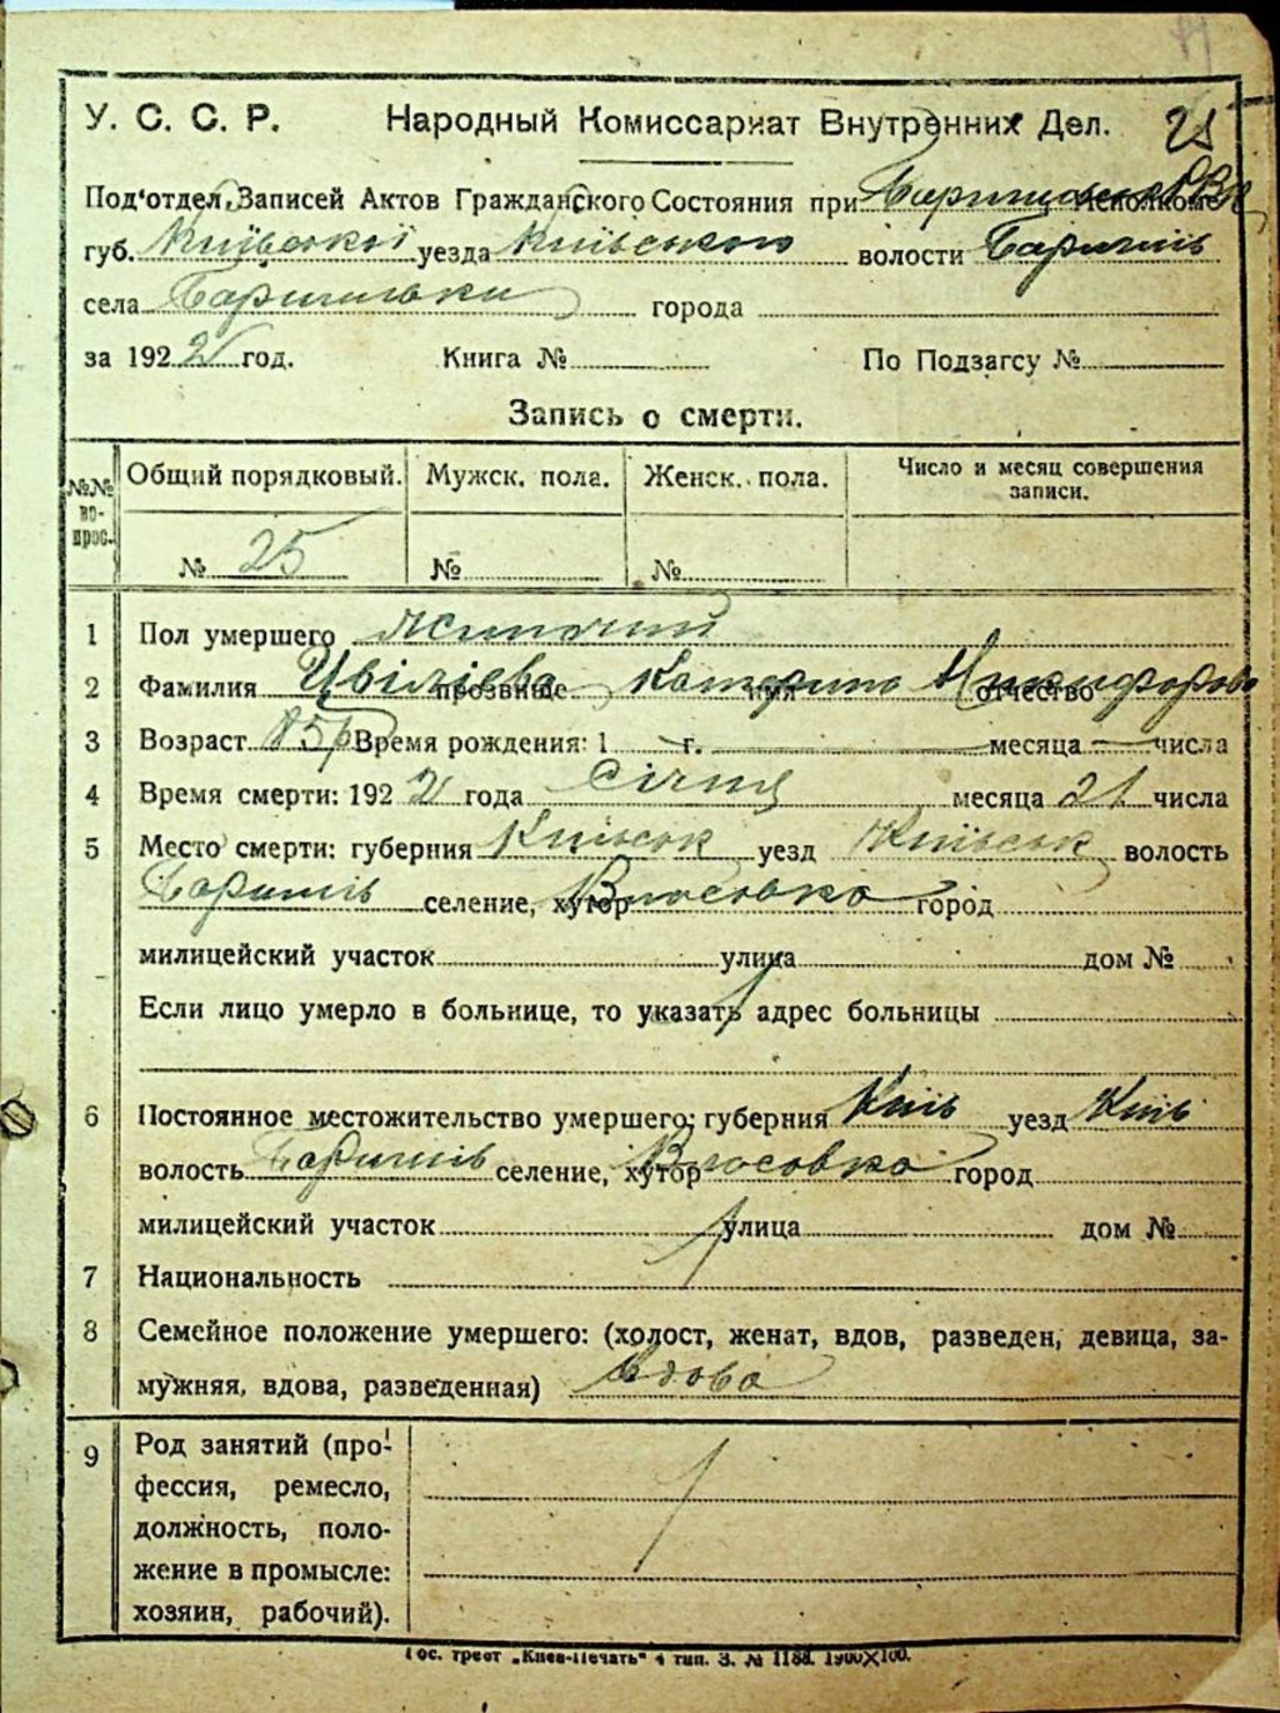 У. С. С. Р. Народный Комиссариат Внутренних Дел. 25
Под'отдел Записей Актов Гражданского Состояния при Исполкоме
губ. Київської уезда Київського волости Баришів
села Баришівки города
за 1922 год. Книга № По Подзагсу №
Запись о смерти.
№№ вопрос. Общий порядковый. Мужск. пола. Женск. пола. Число и месяц совершения записи.
№ 25 № №
1 Пол умершего жиночий
2 Фамилия прозвище Катерина имя Никифорова отчество
3 Возраст 85р Время рождения: 1 г. месяца числа
4 Время смерти: 1922 года Січня месяца 21 числа
5 Место смерти: губерния Київськ уезд Київськ волость
Баришів селение, хутор Власовка город
милицейский участок улица дом №
Если лицо умерло в больнице, то указать адрес больницы
6 Постоянное местожительство умершего: губерния Київ уезд Київ
волость Баришів селение, хутор Власовка город
милицейский участок улица дом №
7 Национальность
8 Семейное положение умершего: (холост, женат, вдов, разведен, девица, за-
мужняя, вдова, разведенная) вдова
9 Род занятий (про-
фессия, ремесло,
должность, поло-
жение в промысле:
хозяин, рабочий).
Гос. трест „Киев-Печать" 4 тип. З. № 1188. 1900×100.